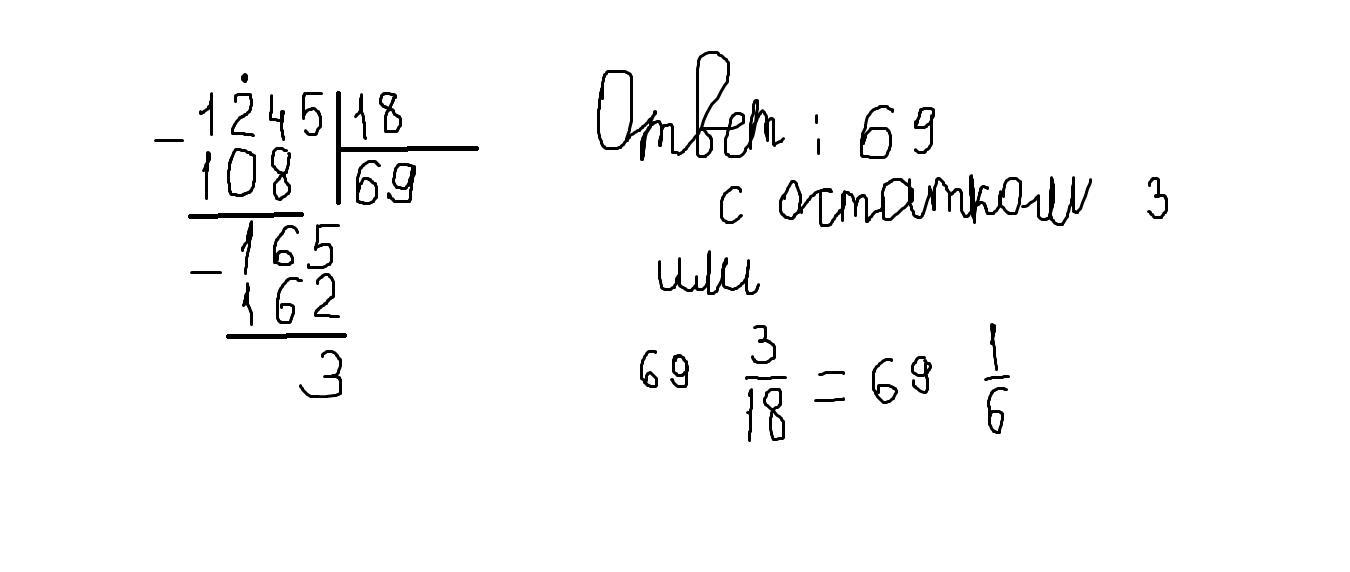 - 1245 | 18
108 | 69
- 165
162
3
Ответ: 69
с остатком 3
или
69 3/18 = 69 1/6